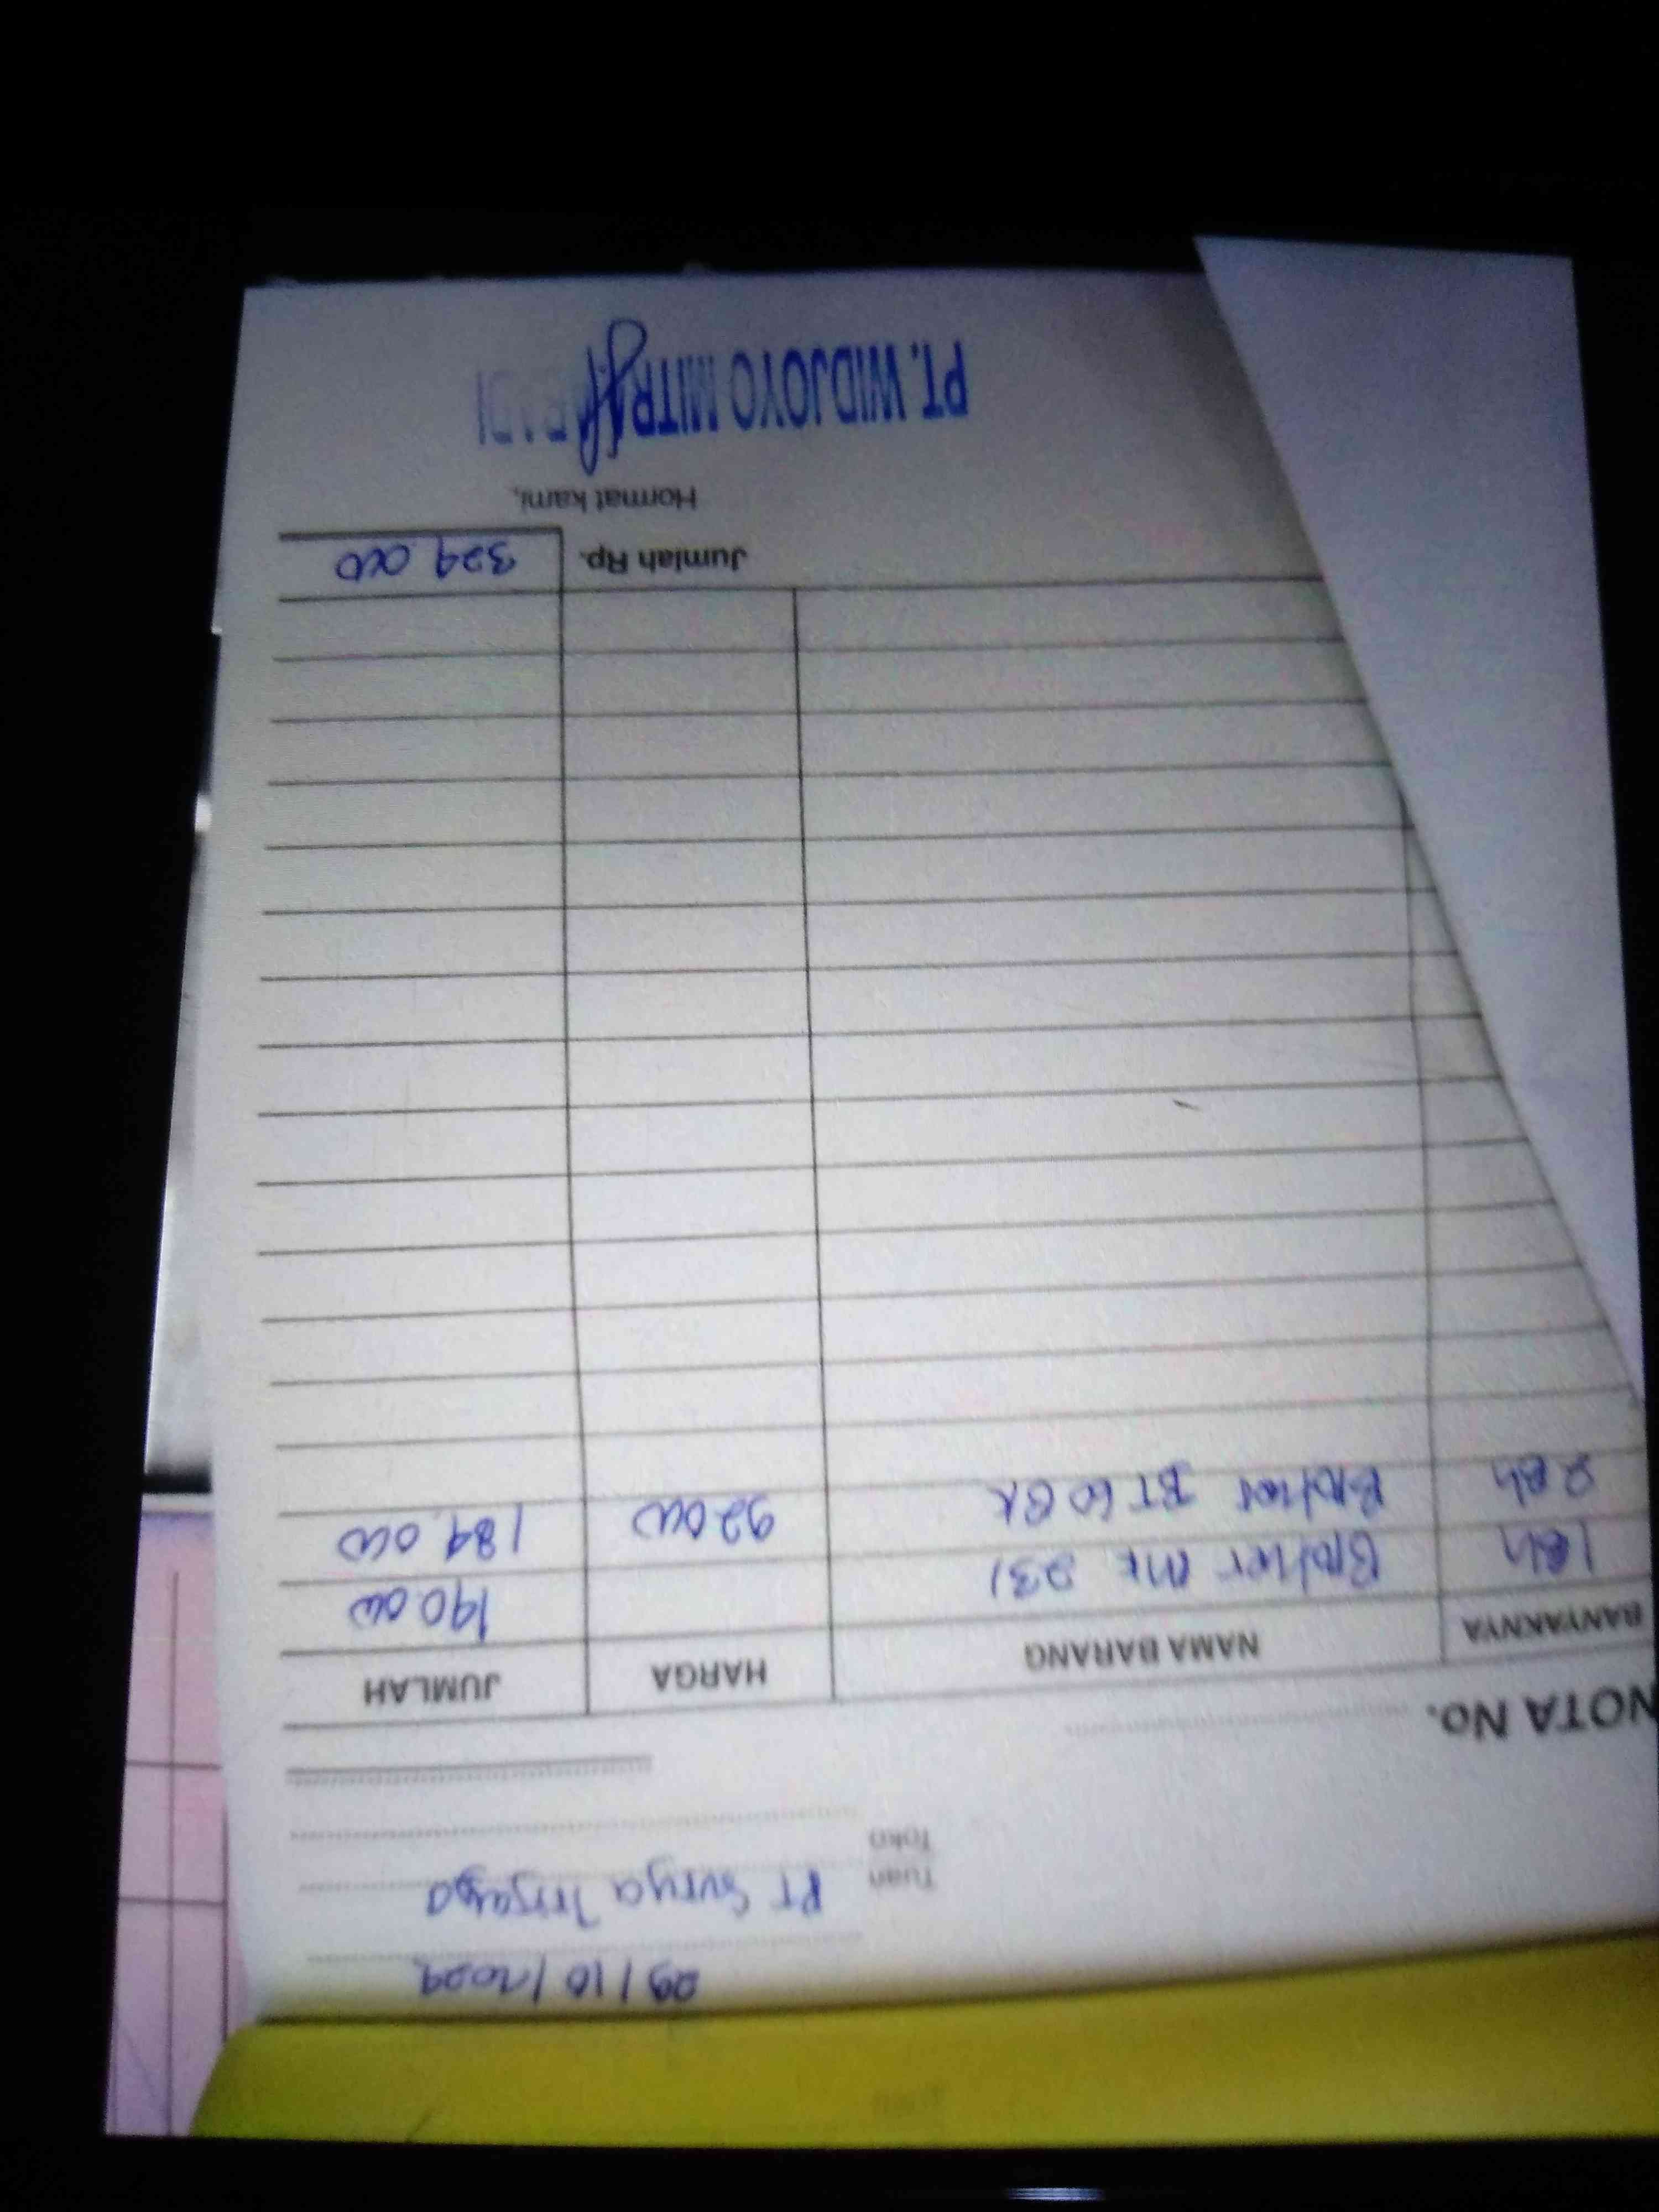 29/10/2024
Tuan PT Surya Trijaya
Toko
NOTA No.
BANYAKNYA NAMA BARANG HARGA JUMLAH
1 Bh Brother MK 231 140.000
2 Bh Brother BT 60 BK 92.000 184.000
Jumlah Rp. 324.000
Hormat kami,
PT. WIDJOYO MITRA